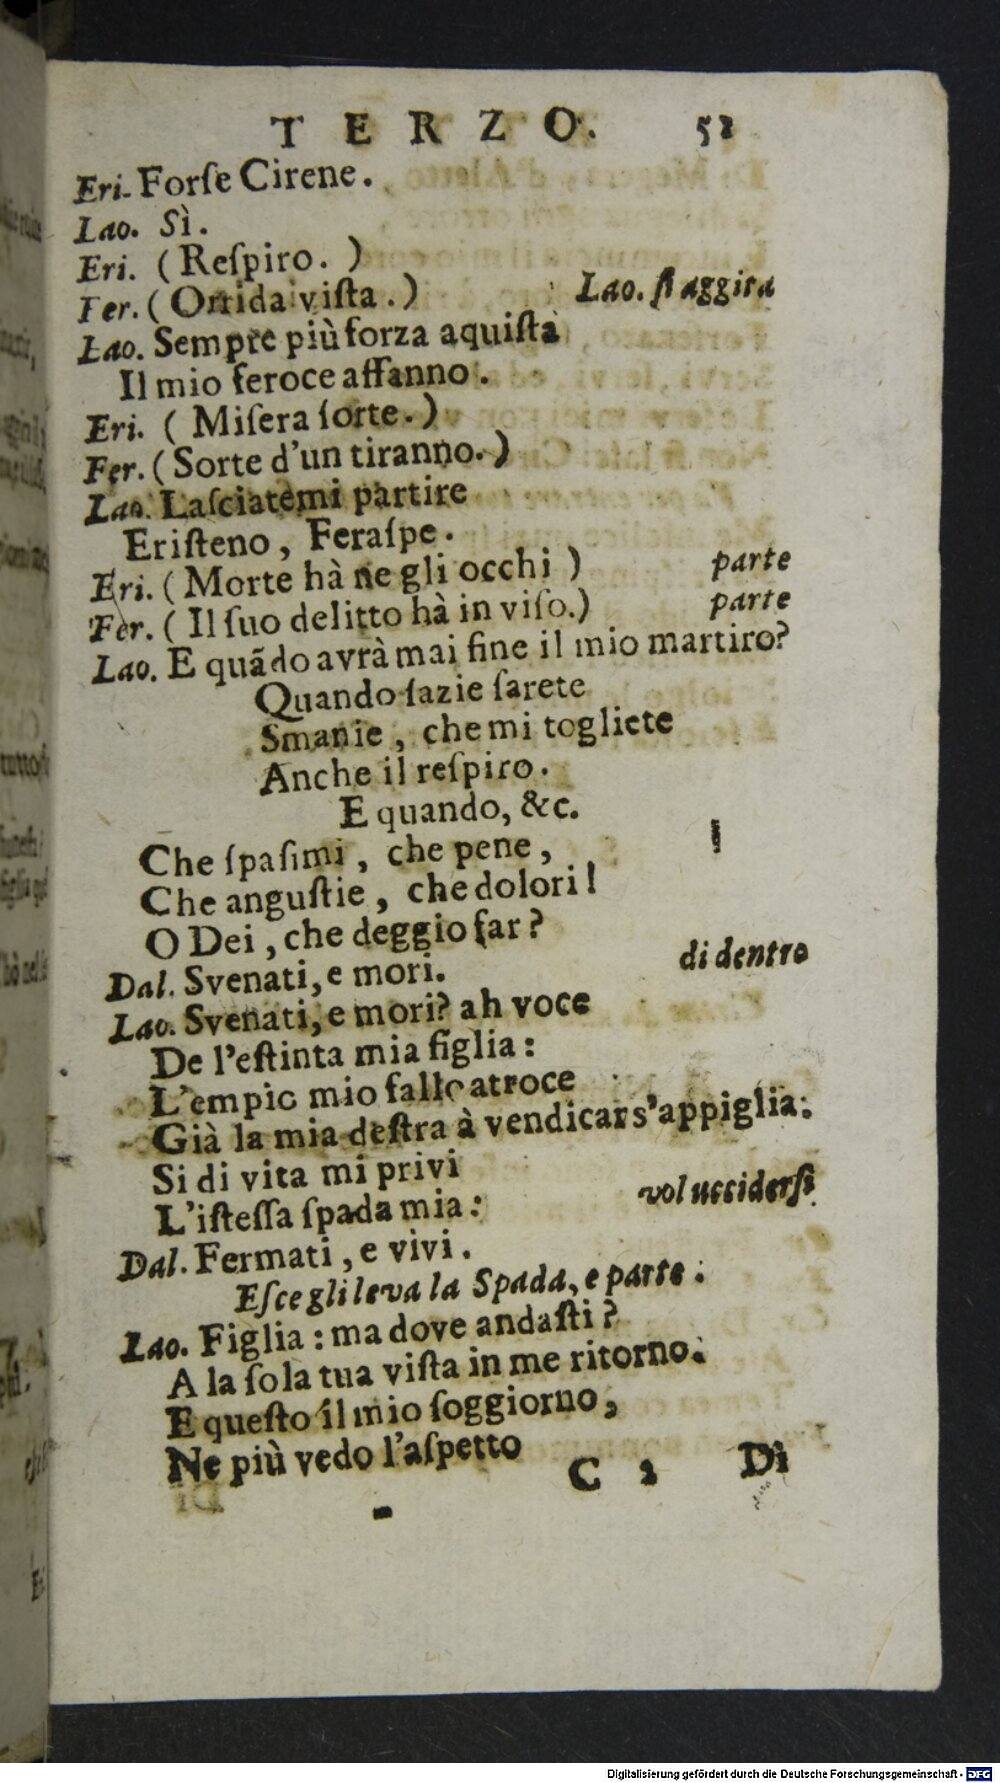 TERZO. 52
Eri. Forſe Cirene.
Lao. Sì.
Eri. (Reſpiro.)
Fer. (Orrida viſta.) Lao. ſi aggira
Lao. Sempre più forza aquiſta
Il mio feroce affanno.
Eri. (Miſera ſorte.)
Fer. (Sorte d'un tiranno.)
Lao. Laſciatemi partire
Eriſteno, Feraſpe.
Eri. (Morte hà ne gli occhi) parte
Fer. (Il ſuo delitto hà in viſo.) parte
Lao. E quãdo avrà mai fine il mio martiro?
Quando ſazie ſarete
Smanie, che mi togliete
Anche il reſpiro.
E quando, &c.
Che ſpaſimi, che pene,
Che anguſtie, che dolori!
O Dei, che deggio far?
Dal. Svenati, e mori. di dentro
Lao. Svenati, e mori? ah voce
De l'eſtinta mia figlia:
L'empio mio fallo atroce
Già la mia deſtra à vendicar s'appiglia:
Si di vita mi privi
L'iſteſſa ſpada mia: vol ucciderſi
Dal. Fermati, e vivi.
Eſce gli leva la Spada, e parte.
Lao. Figlia: ma dove andaſti?
A la ſola tua viſta in me ritorno.
E queſto il mio ſoggiorno,
Ne più vedo l'aſpetto
C 2 Di
Digitalisierung gefördert durch die Deutsche Forschungsgemeinschaft - DFG